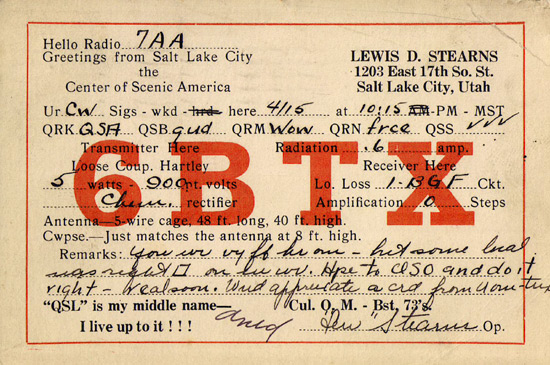 Hello Radio 7AA
Greetings from Salt Lake City
the
Center of Scenic America
LEWIS D. STEARNS
1203 East 17th So. St.
Salt Lake City, Utah
Ur CW Sigs - wkd - hrd - here 4/15 at 10:15 AM-PM - MST
QRK QSA QSB gud QRM Wow QRN free QSS vvv
Transmitter Here Radiation .6 amp.
Loose Coup. Hartley Receiver Here
5 watts - 900 pt. volts Lo. Loss 1-BGF Ckt.
Chem. rectifier Amplification 0 Steps
6BTX
Antenna—5-wire cage, 48 ft. long, 40 ft. high.
Cwpse.—Just matches the antenna at 8 ft. high.
Remarks: You wr vy fb hr om - but some local
was right on ur wv. Hpe to QSO and do it
right - real soon. Wud appreciate a crd from U om - tnx
"QSL" is my middle name— Cul. O. M. - Bst. 73's.
I live up to it ! ! ! "Lew" Stearns Op.